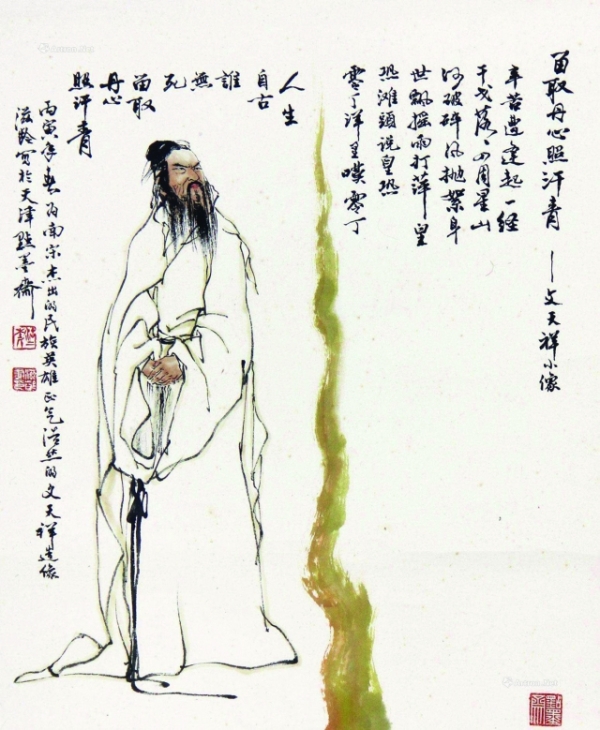 留取丹心照汗青 — 文天祥小像
辛苦遭逢起一经
干戈落〻四周星山
河破碎风抛絮身
世飘摇雨打萍皇
恐滩頭说皇恐
零丁洋里嘆零丁
人生
自古
誰
無
死
留取
丹心
照汗青
丙寅年春为南宋杰出的民族英雄正气浩然的文天祥造像
滋龄写於天津點墨斋